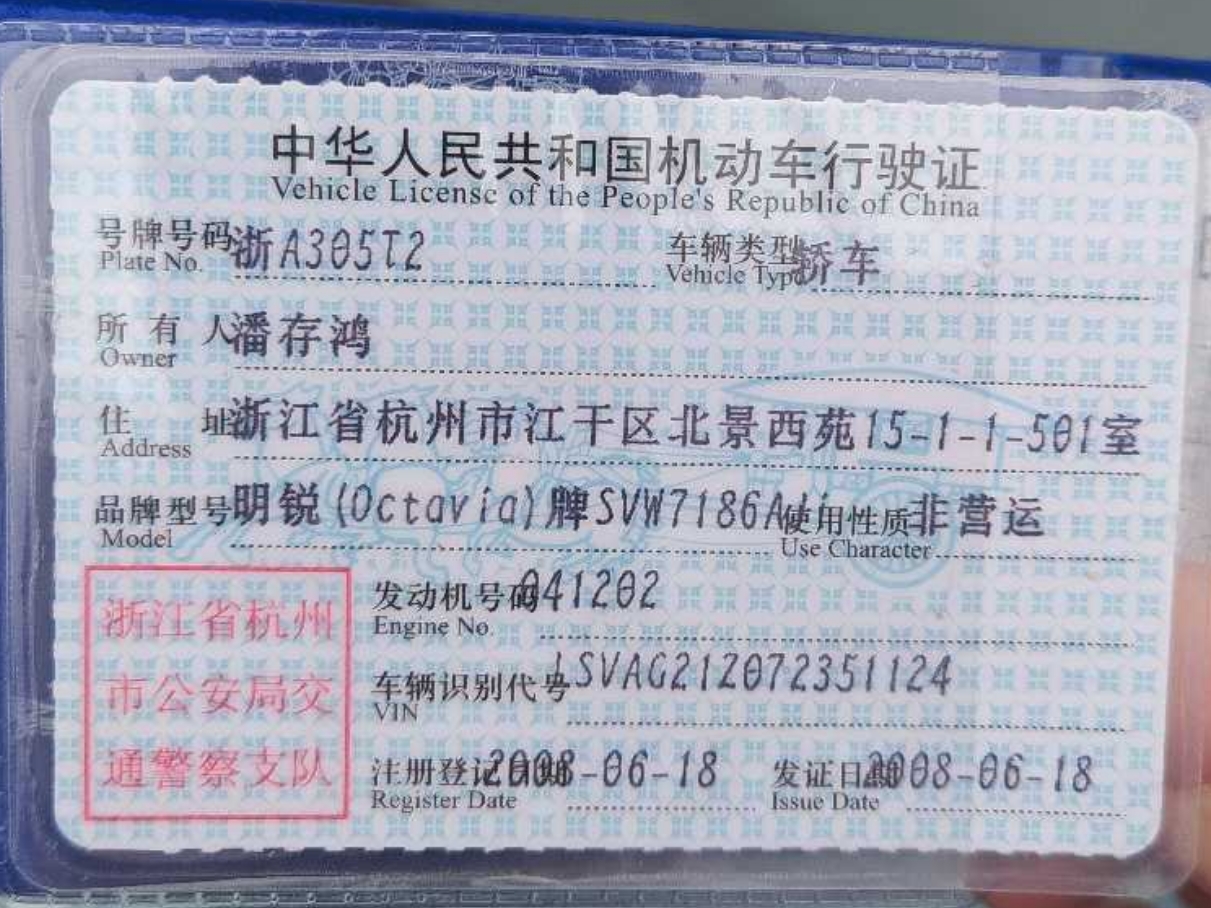 中华人民共和国机动车行驶证
Vehicle License of the People's Republic of China
号牌号码 浙A305T2 车辆类型 轿车
Plate No. Vehicle Type
所有人 潘存鸿
Owner
住址 浙江省杭州市江干区北景西苑15-1-1-501室
Address
品牌型号 明锐(Octavia)牌SVW7186A 使用性质 非营运
Model Use Character
浙江省杭州
市公安局交
通警察支队
发动机号码 041202
Engine No.
车辆识别代号 LSVAG21Z072351124
VIN
注册登记日期 2008-06-18 发证日期 2008-06-18
Register Date Issue Date